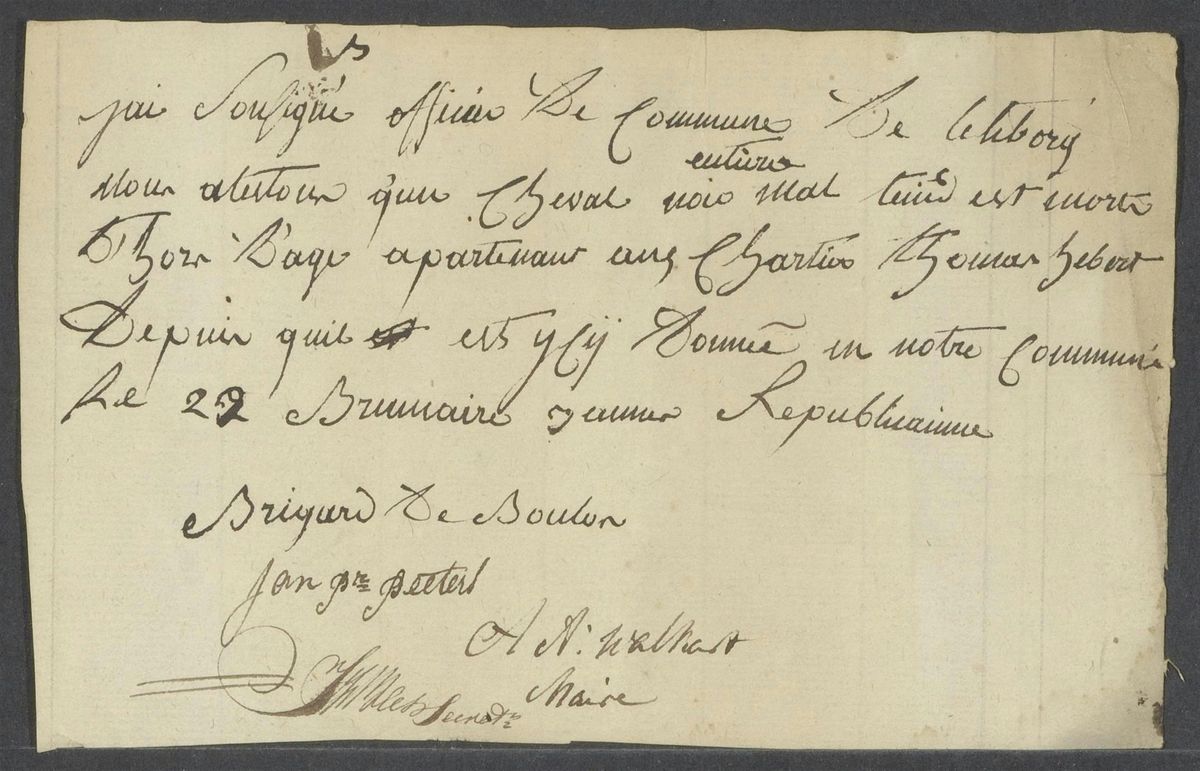 jai Sousigné officier De Commune De
entiere
nous atestons q'un Cheval noir mal teint est morte
Thors D'age apartenant auz Chartier Thomas hebert
Depuis quil est ycÿ Donneé en notre Commune
Le 22 Brumaire 3 annes Republicainne
Brigard De Boulon
Jan pr peeters
A A: Walkart
Maire